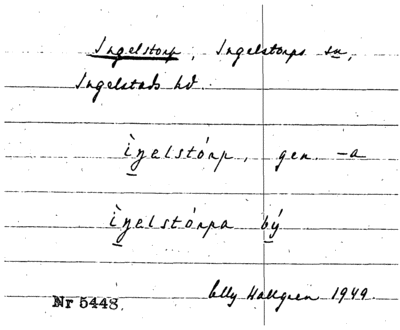 Ingelstorp, Ingelstorps sn,
Ingelstads hd.
ìŋelstórp, gen. -a
ìŋelstórpa bý
Elly Hallgren 1949.
Nr 5448.